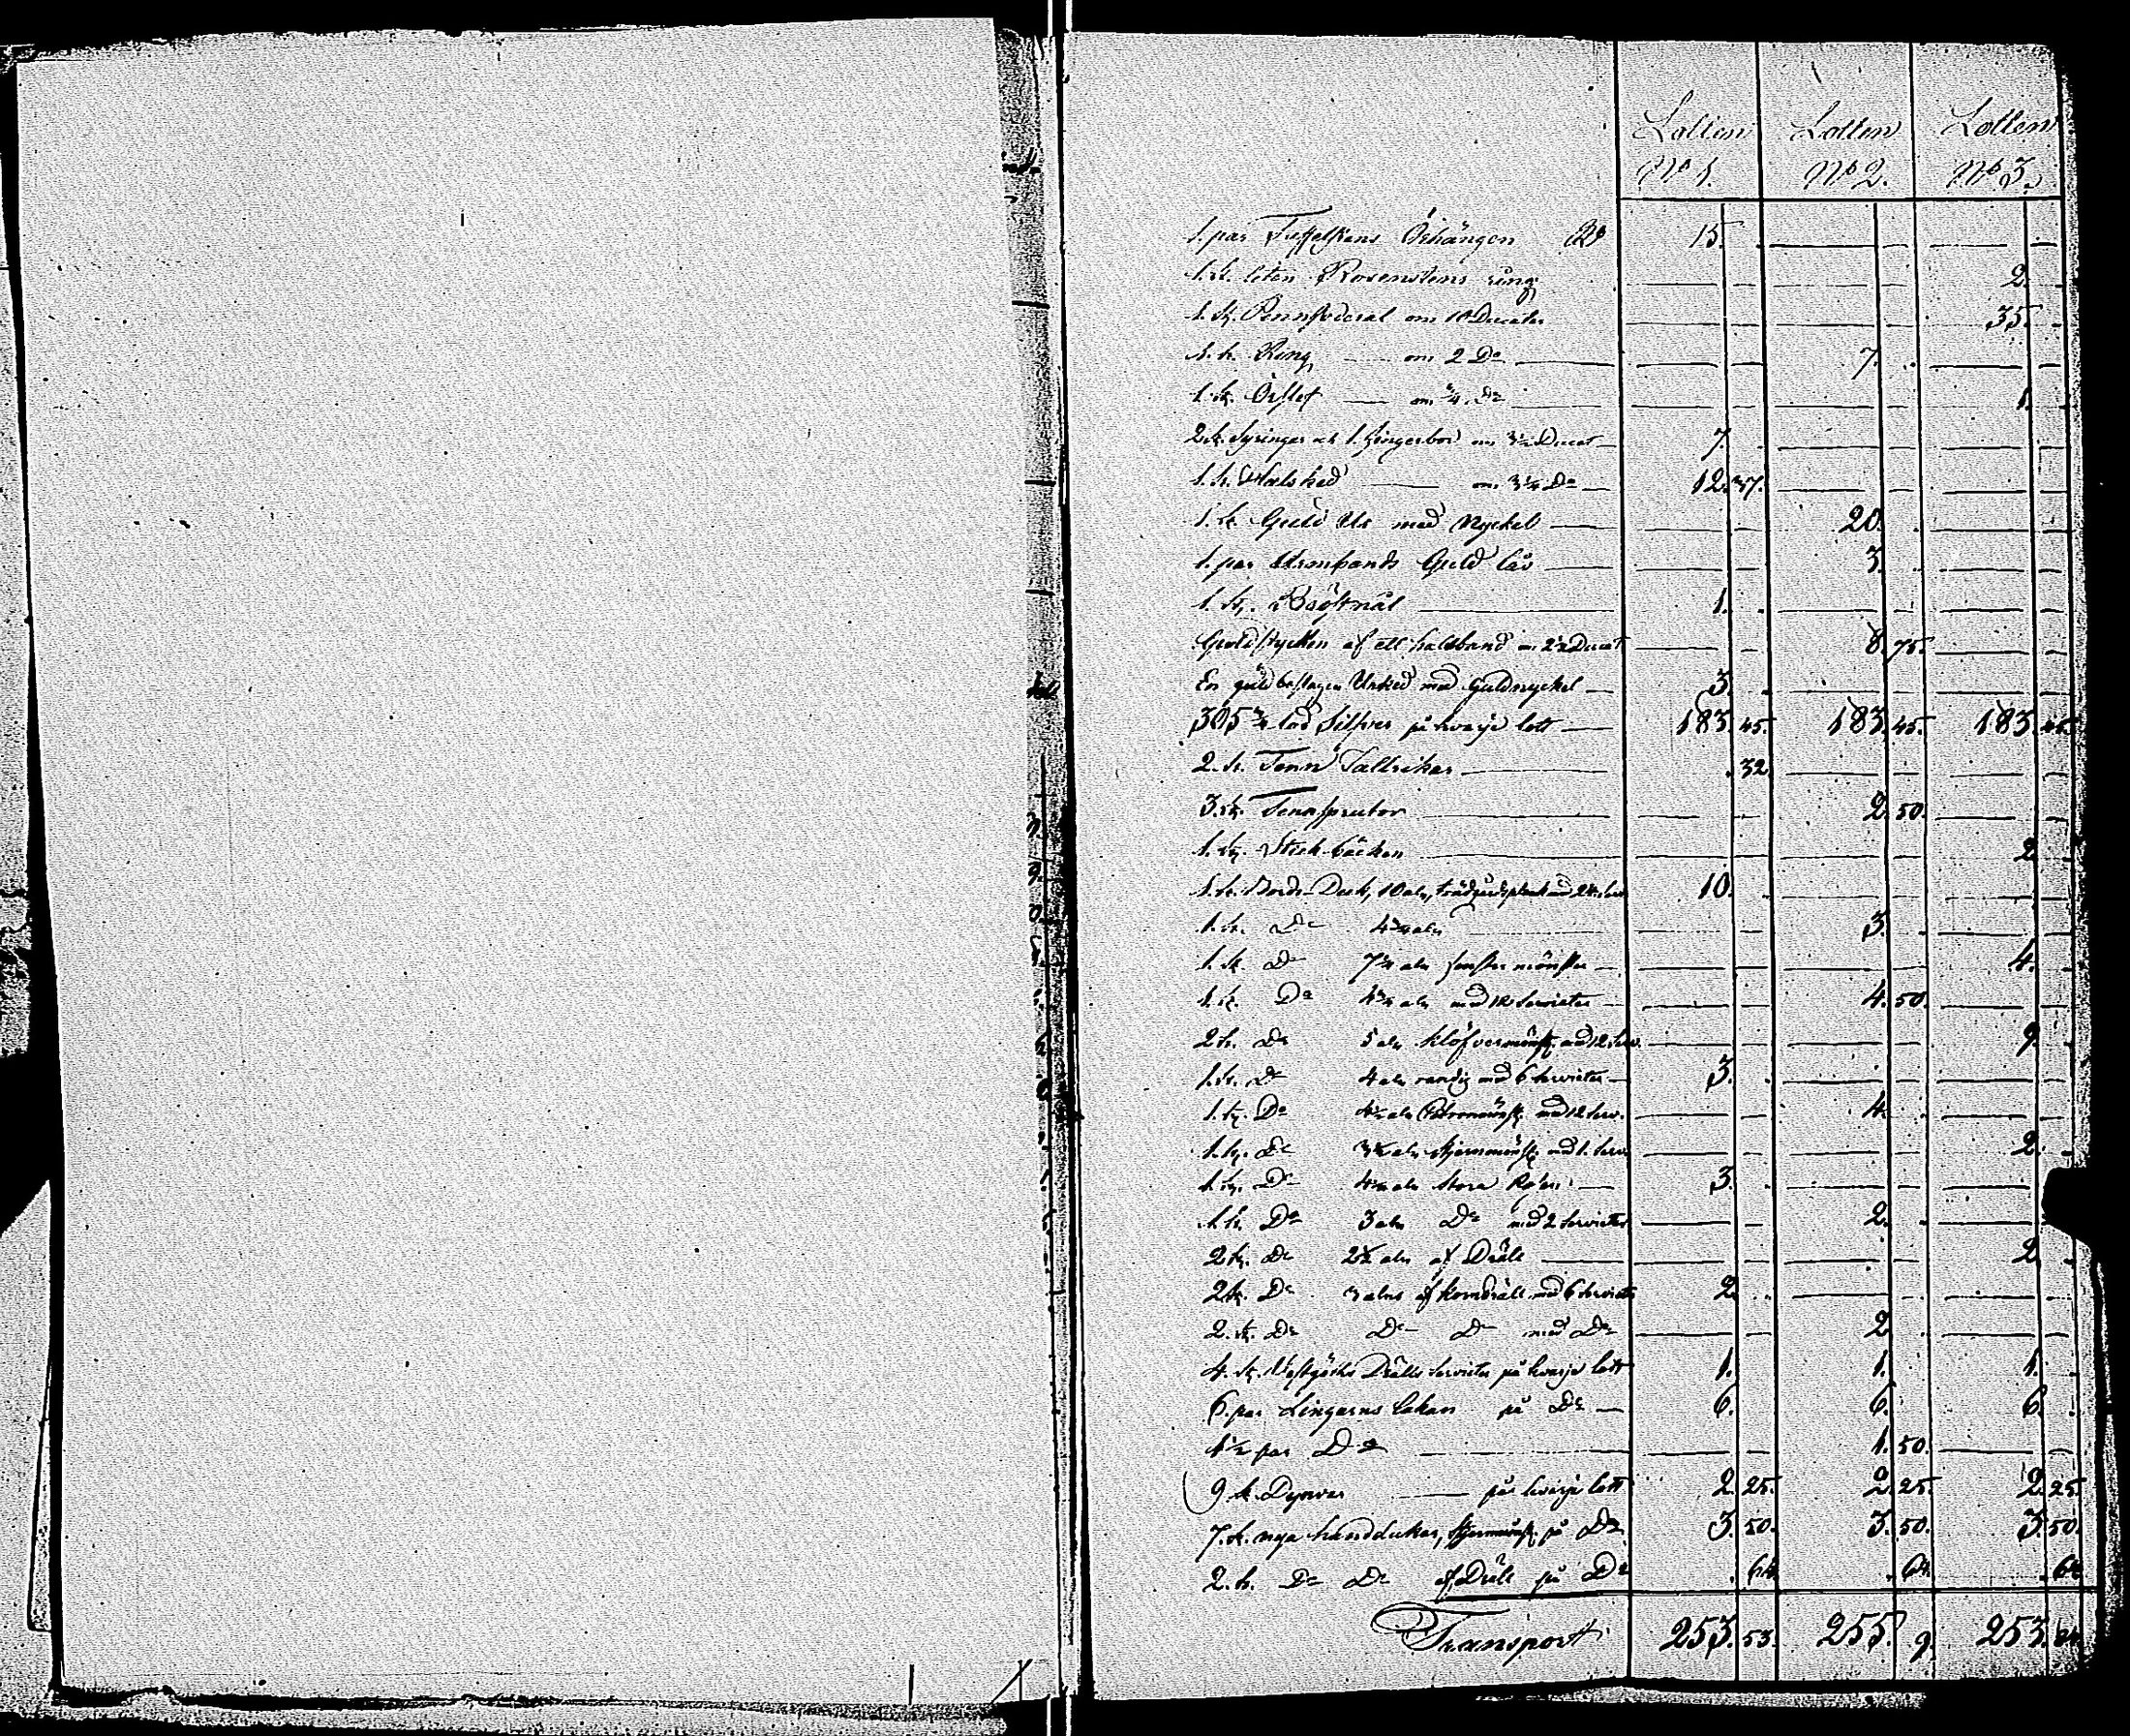 Lotten Lotten Lotten
No 1. No 2. No 3.
1. par Örhängen Rd 15.
1. st. liten Rosenstens ring 2.
1. st. Pennfoderal om 10 Ducater 35.
1. st. Ring om 2 Do 7.
1. st. om 1/4 Do 1.
2 st. Syringar och 1. fingerbor om 3 1/2 Ducat 7.
1. st. Halsked om 3 1/4 Do 12. 37.
1. st. Guld Ur med Nyckel 20.
1. par Armbands Guld lås 3.
1. st. Bröstnål 1.
Guldstycken af ett halsband om 2 1/2 Ducat 8. 75.
En guldbeslagen Urked med Guldnyckel 3.
305 3/4 lod Silfver på hvarje lott 183. 45. 183. 45. 183. 45.
2. st. Tenn Tallrikar . 32.
3. st. Tennsprutor 2. 50.
1. st. Stick bäcken 2.
1. st. Bords-Duk, 10 aln, med 24 serv. 10.
1. st. Do 4 3/4 aln 3.
1. st. Do 7 1/4 aln fenster mönster 4.
1. st. Do 4 3/4 aln med 12 servieter 4. 50.
2 st. Do 5 aln klöfvermönst. med 12 serv. 9.
1. st. Do 4 aln randig med 6 servieter 3.
1. st. Do 4 1/2 aln med 12 serv. 4.
1. st. Do 3 1/2 aln stjernmönst. med 1. serv. 2.
1. st. Do 4 1/2 aln stora 3.
1. st. Do 3 aln Do med 2 servieter 2.
2 st. Do 2 1/2 aln af Dräll 2.
2 st. Do 3 alns af korndräll med 6 servieter 2.
2. st. Do Do Do med Do 2.
4. st. Westgötha Drälls servieter på hvarje lott 1. 1. 1.
6. par Lingarns lakan på Do 6. 6. 6.
1 1/2 par Do 1. 50.
9. st. Dynvar på hvarje lott 2. 25. 2. 25. 2. 25.
7. st. nya handdukar, stjernmönst. på Do 3. 50. 3. 50. 3. 50.
2. st. Do Do af Dräll på Do . 64. . 64. . 64.
Transport 253. 53. 255. 9. 253. 84.